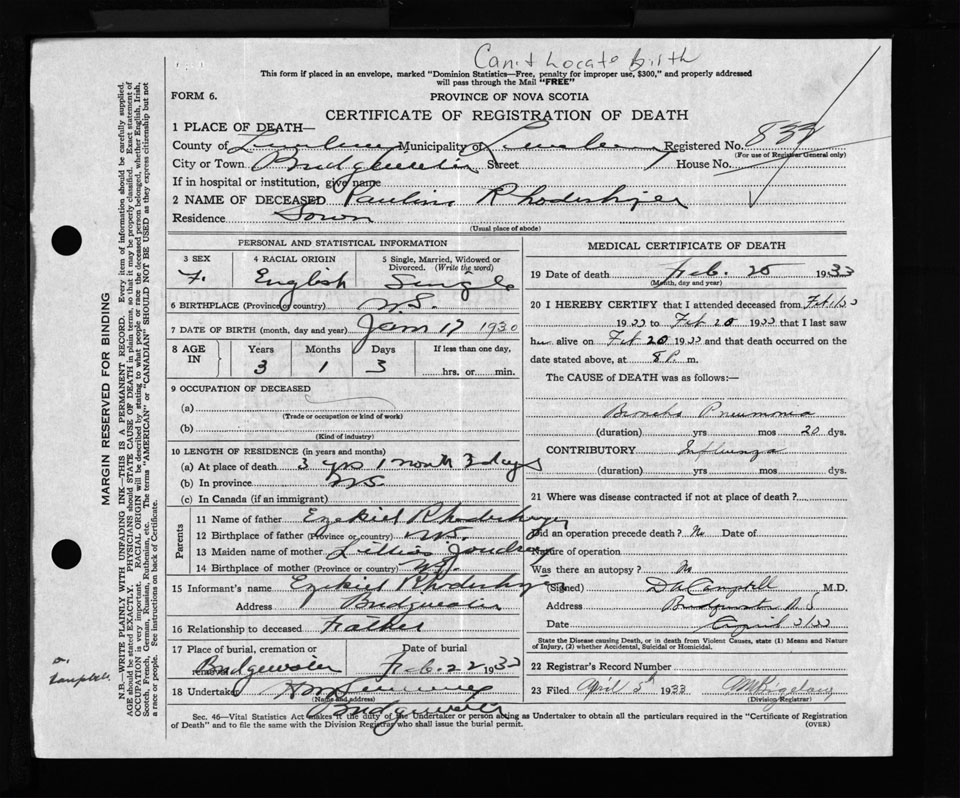 Can't Locate birth
This form if placed in an envelope, marked "Dominion Statistics—Free, penalty for improper use, $300," and properly addressed
will pass through the Mail "FREE"
FORM 6.
PROVINCE OF NOVA SCOTIA
CERTIFICATE OF REGISTRATION OF DEATH
1 PLACE OF DEATH—
County of Lunenburg Municipality of Lunenburg Registered No. 839
(For use of Registrar General only)
City or Town Bridgewater Street House No.
If in hospital or institution, give name
2 NAME OF DECEASED Pauline Rhodenhizer
Residence Town
(Usual place of abode)
PERSONAL AND STATISTICAL INFORMATION
3 SEX
F.
4 RACIAL ORIGIN
English
5 Single, Married, Widowed or Divorced. (Write the word)
Single
6 BIRTHPLACE (Province or country) N.S.
7 DATE OF BIRTH (month, day and year) Jan 17 1930
8 AGE IN
Years Months Days If less than one day,
3 1 3 hrs. or min.
9 OCCUPATION OF DECEASED
(a)
(Trade or occupation or kind of work)
(b)
(Kind of industry)
10 LENGTH OF RESIDENCE (in years and months)
(a) At place of death 3 yrs 1 month 3 days
(b) In province N.S.
(c) In Canada (if an immigrant)
Parents
11 Name of father Ezekiel Rhodenhizer
12 Birthplace of father (Province or country) N.S.
13 Maiden name of mother Lillias Joudrey
14 Birthplace of mother (Province or country) N.S.
15 Informant's name Ezekiel Rhodenhizer
Address Bridgewater
16 Relationship to deceased Father
17 Place of burial, cremation or removal Date of burial
Bridgewater Feb. 22 1933
18 Undertaker
(Name and address)
Bridgewater
MEDICAL CERTIFICATE OF DEATH
19 Date of death Feb. 20 1933
(Month, day and year)
20 I HEREBY CERTIFY that I attended deceased from Feb 1/33
1933 to Feb 20 1933 that I last saw
her alive on Feb 20 1933 and that death occurred on the
date stated above, at 8 P. m.
The CAUSE of DEATH was as follows:—
Broncho Pneumonia
(duration) yrs mos 20 dys.
CONTRIBUTORY Influenza
(duration) yrs mos dys.
21 Where was disease contracted if not at place of death?
Did an operation precede death? No Date of
Nature of operation
Was there an autopsy? No
(Signed) D A Campbell M.D.
Address Bridgewater N.S.
Date April 3/33
State the Disease causing Death, or in death from Violent Causes, state (1) Means and Nature
of Injury, (2) whether Accidental, Suicidal or Homicidal.
22 Registrar's Record Number
23 Filed April 5th 1933
(Division Registrar)
Sec. 46—Vital Statistics Act makes it the duty of the Undertaker or person acting as Undertaker to obtain all the particulars required in the "Certificate of Registration
of Death" and to file the same with the Division Registrar who shall issue the burial permit.
(OVER)
MARGIN RESERVED FOR BINDING
N.B.—WRITE PLAINLY WITH UNFADING INK—THIS IS A PERMANENT RECORD. Every item of information should be carefully supplied.
AGE should be stated EXACTLY. PHYSICIANS should STATE CAUSE OF DEATH in plain terms, so that it may be properly classified. Exact statement of
OCCUPATION is very important. RACIAL ORIGIN will be described by stating to what people or race the deceased person belonged, whether English, Irish,
Scotch, French, German, Russian, Ruthenian, etc. The terms "AMERICAN" or "CANADIAN" SHOULD NOT BE USED as they express citizenship but not
a race or people. See instructions on back of Certificate.
Dr.
Campbell